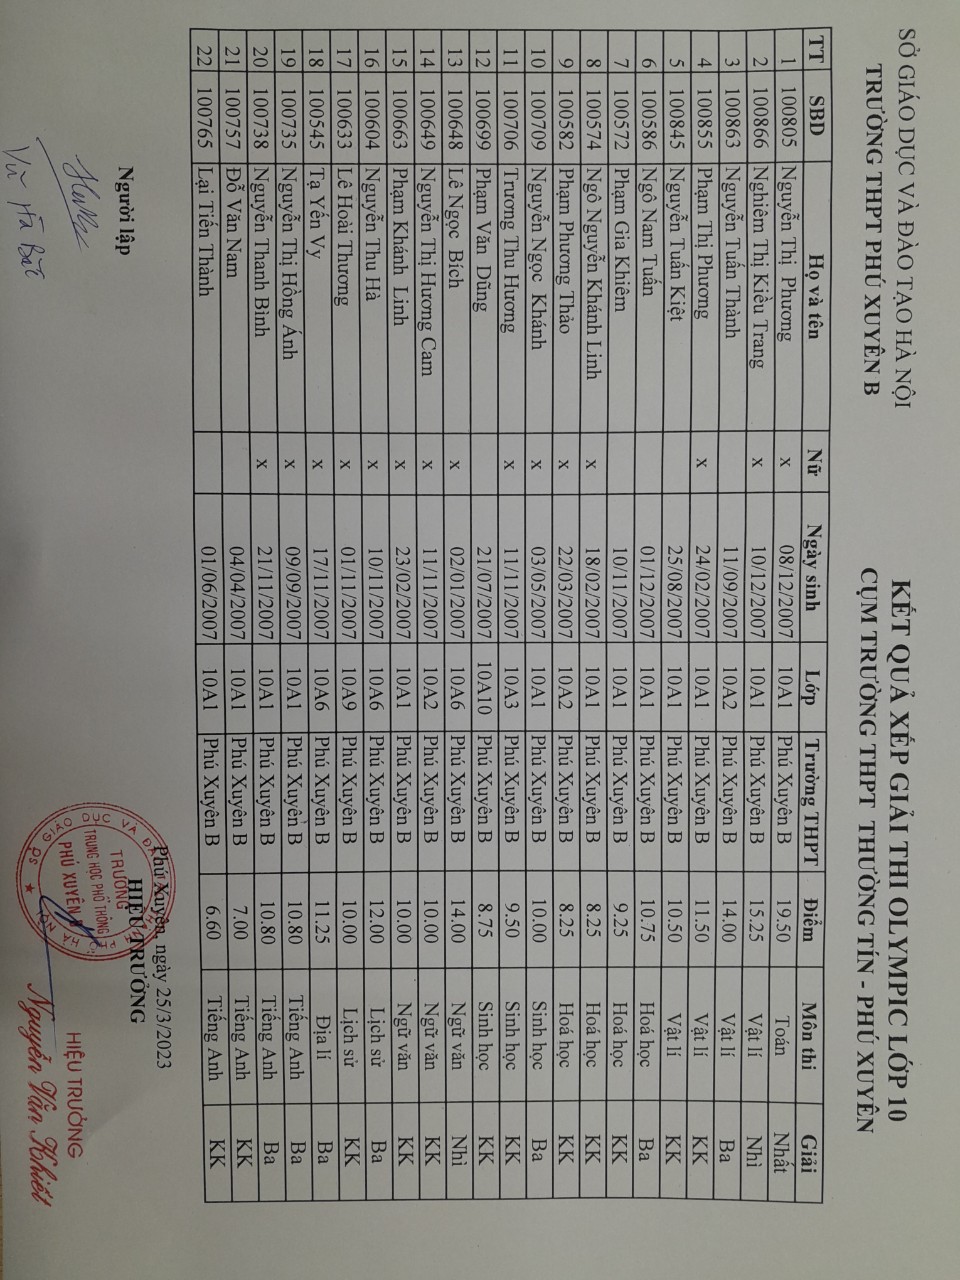 SỞ GIÁO DỤC VÀ ĐÀO TẠO HÀ NỘI
TRƯỜNG THPT PHÚ XUYÊN B
KẾT QUẢ XẾP GIẢI THI OLYMPIC LỚP 10
CỤM TRƯỜNG THPT THƯỜNG TÍN - PHÚ XUYÊN
TT SBD Họ và tên Nữ Ngày sinh Lớp Trường THPT Điểm Môn thi Giải
1 100805 Nguyễn Thị Phương x 08/12/2007 10A1 Phú Xuyên B 19.50 Toán Nhất
2 100866 Nghiêm Thị Kiều Trang x 10/12/2007 10A1 Phú Xuyên B 15.25 Vật lí Nhì
3 100863 Nguyễn Tuấn Thành 11/09/2007 10A2 Phú Xuyên B 14.00 Vật lí Ba
4 100855 Phạm Thị Phương x 24/02/2007 10A1 Phú Xuyên B 11.50 Vật lí KK
5 100845 Nguyễn Tuấn Kiệt 25/08/2007 10A1 Phú Xuyên B 10.50 Vật lí KK
6 100586 Ngô Nam Tuấn 01/12/2007 10A1 Phú Xuyên B 10.75 Hoá học Ba
7 100572 Phạm Gia Khiêm 10/11/2007 10A1 Phú Xuyên B 9.25 Hoá học KK
8 100574 Ngô Nguyễn Khánh Linh x 18/02/2007 10A1 Phú Xuyên B 8.25 Hoá học KK
9 100582 Phạm Phương Thảo x 22/03/2007 10A2 Phú Xuyên B 8.25 Hoá học KK
10 100709 Nguyễn Ngọc Khánh x 03/05/2007 10A1 Phú Xuyên B 10.00 Sinh học Ba
11 100706 Trương Thu Hương x 11/11/2007 10A3 Phú Xuyên B 9.50 Sinh học KK
12 100699 Phạm Văn Dũng 21/07/2007 10A10 Phú Xuyên B 8.75 Sinh học KK
13 100648 Lê Ngọc Bích x 02/01/2007 10A6 Phú Xuyên B 14.00 Ngữ văn Nhì
14 100649 Nguyễn Thị Hương Cam x 11/11/2007 10A2 Phú Xuyên B 10.00 Ngữ văn KK
15 100663 Phạm Khánh Linh x 23/02/2007 10A1 Phú Xuyên B 10.00 Ngữ văn KK
16 100604 Nguyễn Thu Hà x 10/11/2007 10A6 Phú Xuyên B 12.00 Lịch sử Ba
17 100633 Lê Hoài Thương x 01/11/2007 10A9 Phú Xuyên B 10.00 Lịch sử KK
18 100545 Tạ Yến Vy x 17/11/2007 10A6 Phú Xuyên B 11.25 Địa lí Ba
19 100735 Nguyễn Thị Hồng Ánh x 09/09/2007 10A1 Phú Xuyên B 10.80 Tiếng Anh Ba
20 100738 Nguyễn Thanh Bình x 21/11/2007 10A1 Phú Xuyên B 10.80 Tiếng Anh Ba
21 100757 Đỗ Văn Nam 04/04/2007 10A1 Phú Xuyên B 7.00 Tiếng Anh KK
22 100765 Lại Tiến Thành 01/06/2007 10A1 Phú Xuyên B 6.60 Tiếng Anh KK
Phú Xuyên, ngày 25/3/2023
Người lập
HIỆU TRƯỞNG
TRƯỜNG
TRUNG HỌC PHỔ THÔNG
PHÚ XUYÊN B
HIỆU TRƯỞNG
Nguyễn Văn Khiết